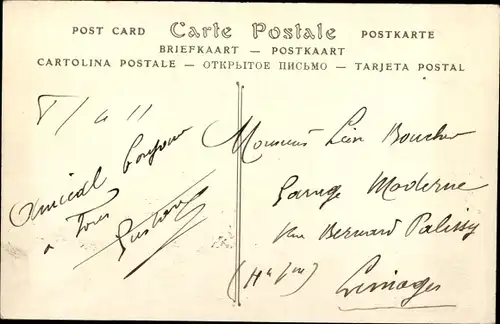 POST CARD Carte Postale POSTKARTE
BRIEFKAART — POSTKAART
CARTOLINA POSTALE — ОТКРЫТОЕ ПИСЬМО — TARJETA POSTAL
Amical bonjour
à Tous
Gustave
Monsieur Léon Boucher
Garage Moderne
Rue Bernard Palissy
Limoges